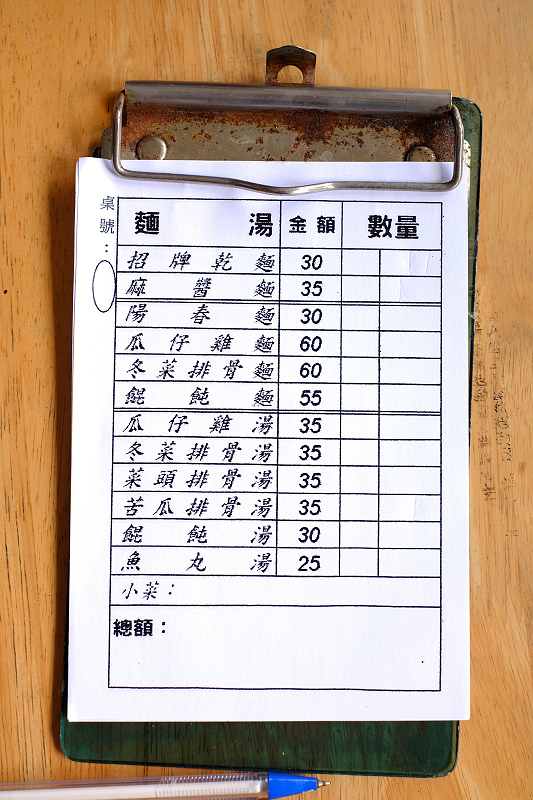 桌號：
麵 湯 金額 數量
招牌乾麵 30
麻醬麵 35
陽春麵 30
瓜仔雞麵 60
冬菜排骨麵 60
餛飩麵 55
瓜仔雞湯 35
冬菜排骨湯 35
菜頭排骨湯 35
苦瓜排骨湯 35
餛飩湯 30
魚丸湯 25
小菜：
總額：